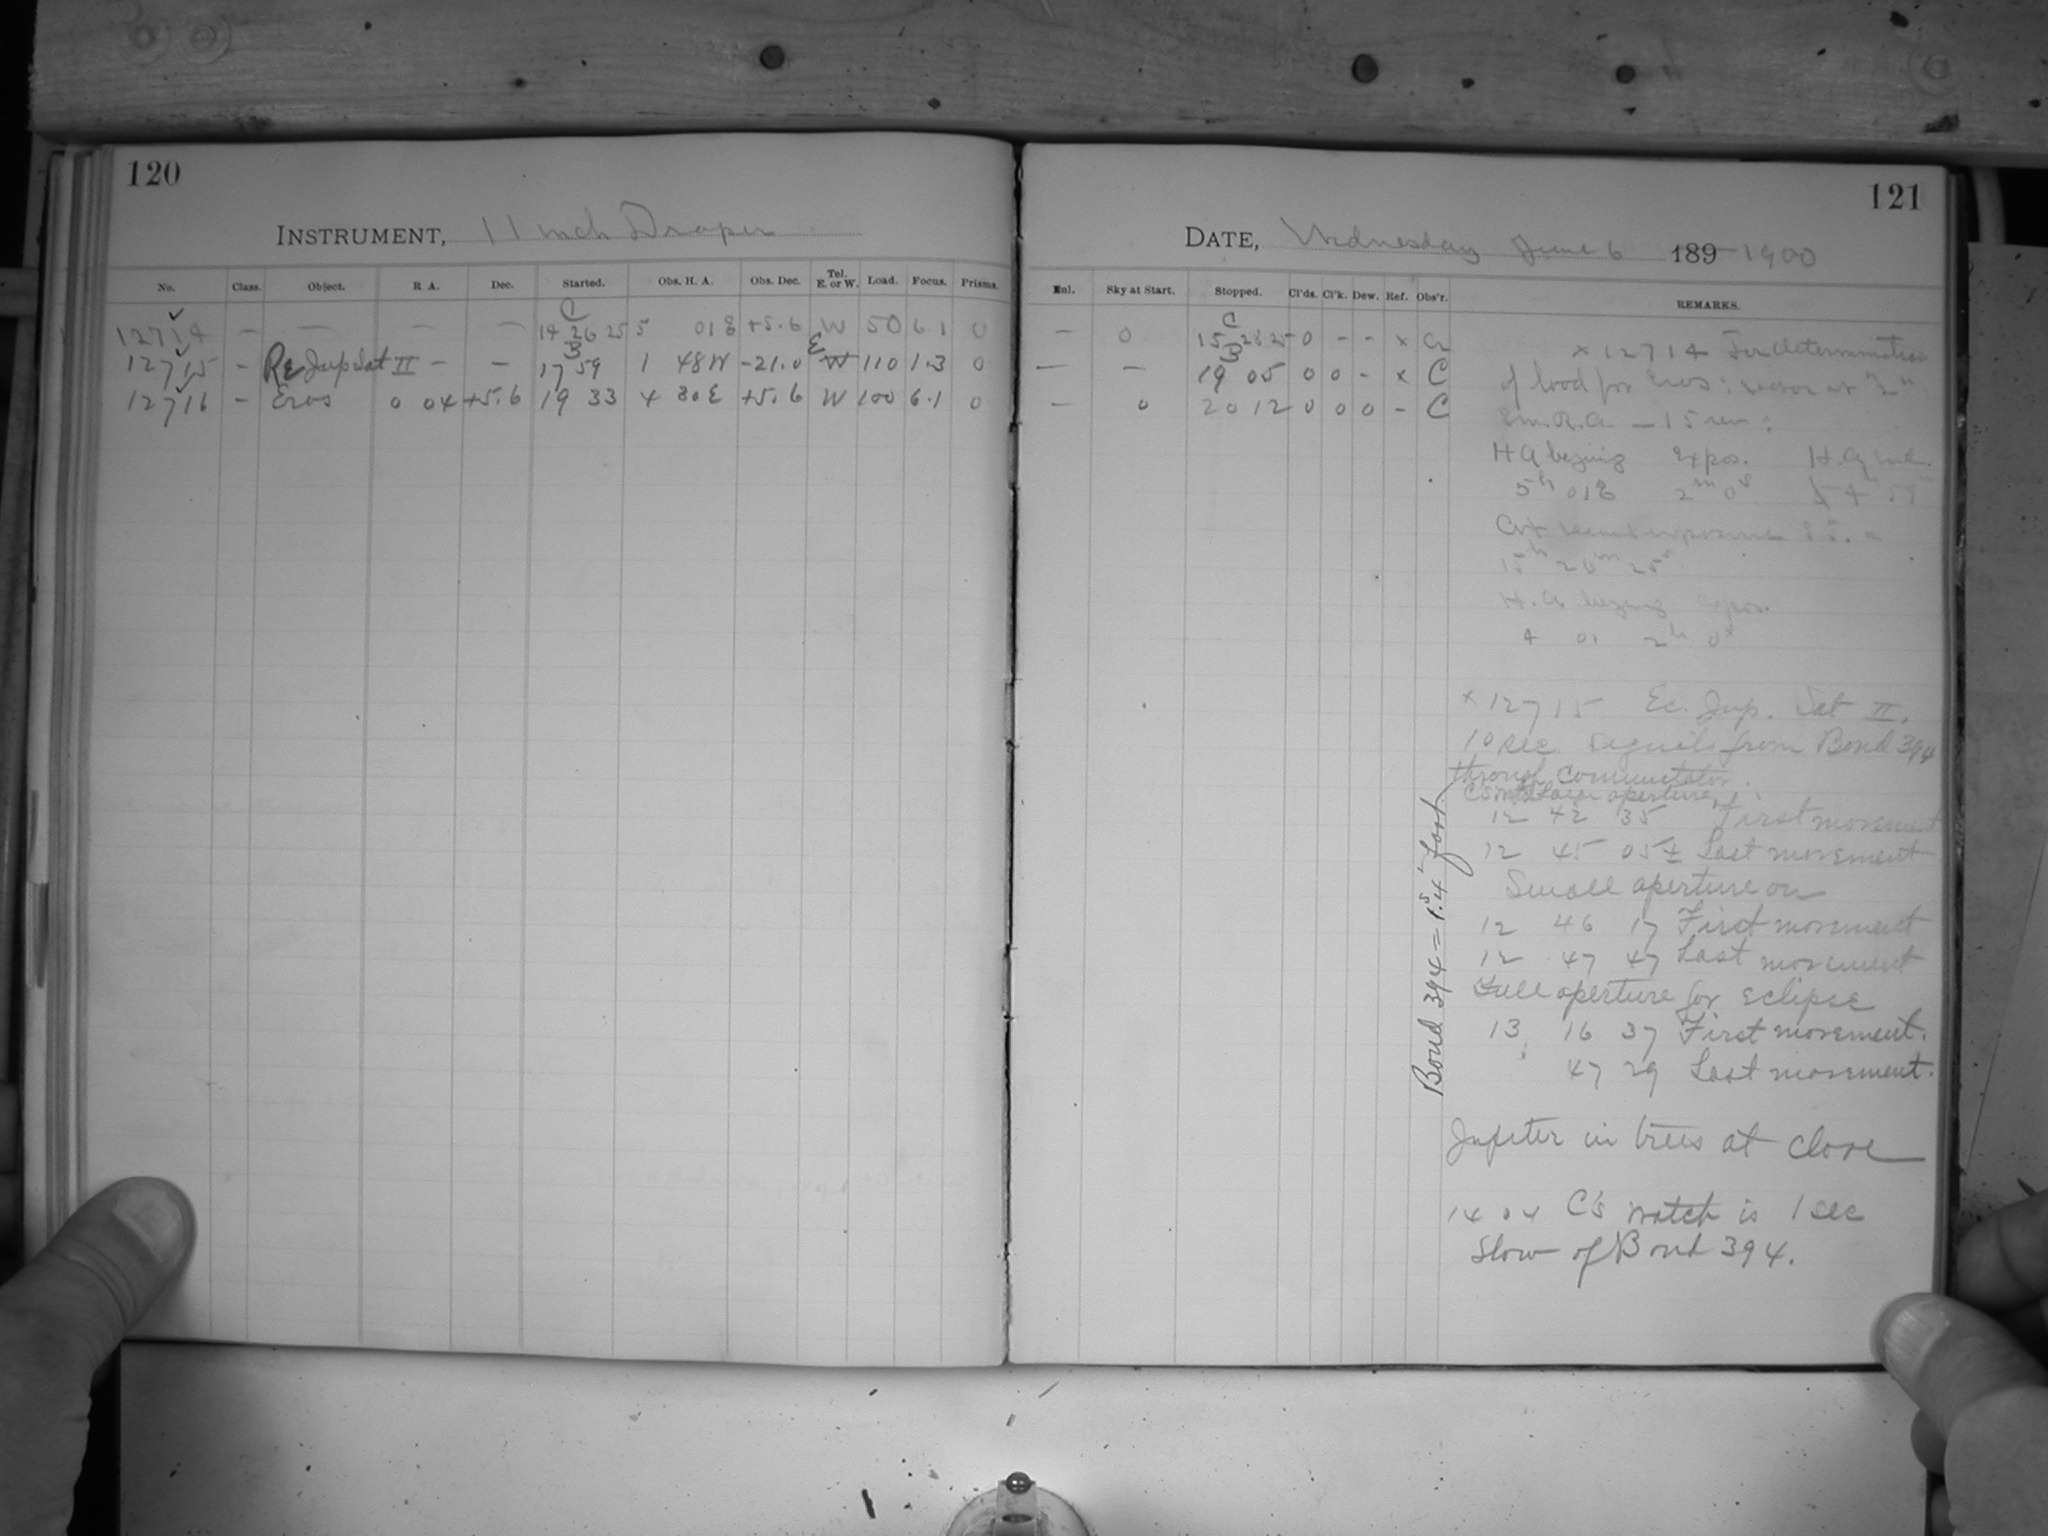 120
INSTRUMENT, 11 inch Draper
No. Class. Object. R A. Dec. Started. Obs. H. A. Obs. Dec. Tel. E. or W. Load. Focus. Prisms.
C
12714 - - - - 14 26 25 5 01 E +5.6 W 50 6.1 0
B E
12715 - Jup Sat II - - 17 59 1 48 W -21.0 W 110 1.3 0
12716 - Eros 0 04 +5.6 19 33 4 30 E +5.6 W 100 6.1 0
121
DATE, Wednesday June 6 189 1900
Enl. Sky at Start. Stopped. Cl'ds. Cl'k. Dew. Ref. Obs'r. REMARKS.
C
- 0 15 28 25 0 - - x
B
- - 19 05 0 0 - x C
- 0 20 12 0 0 0 - C
x 12714 For determination
of load for Eros;
R.A. - 15 rev;
H A begins Expos. H.A. end.
5h 01 E 2m 0s
exposure S.T. =
15h 20m 25s
H.A. begins expos.
4 01 2 0
x 12715 Ec. Jup. Sat II.
10 sec. signals from Bond 394
through commutator.
aperture,
12 42 35 First movement
12 45 05± Last movement
Small aperture on
12 46 17 First movement
12 47 47 Last movement
Full aperture for eclipse
13 16 37 First movement.
47 29 Last movement.
Bond 394 = 1.4s fast.
Jupiter in trees at close
14 04 C's watch is 1 sec
slow of Bond 394.